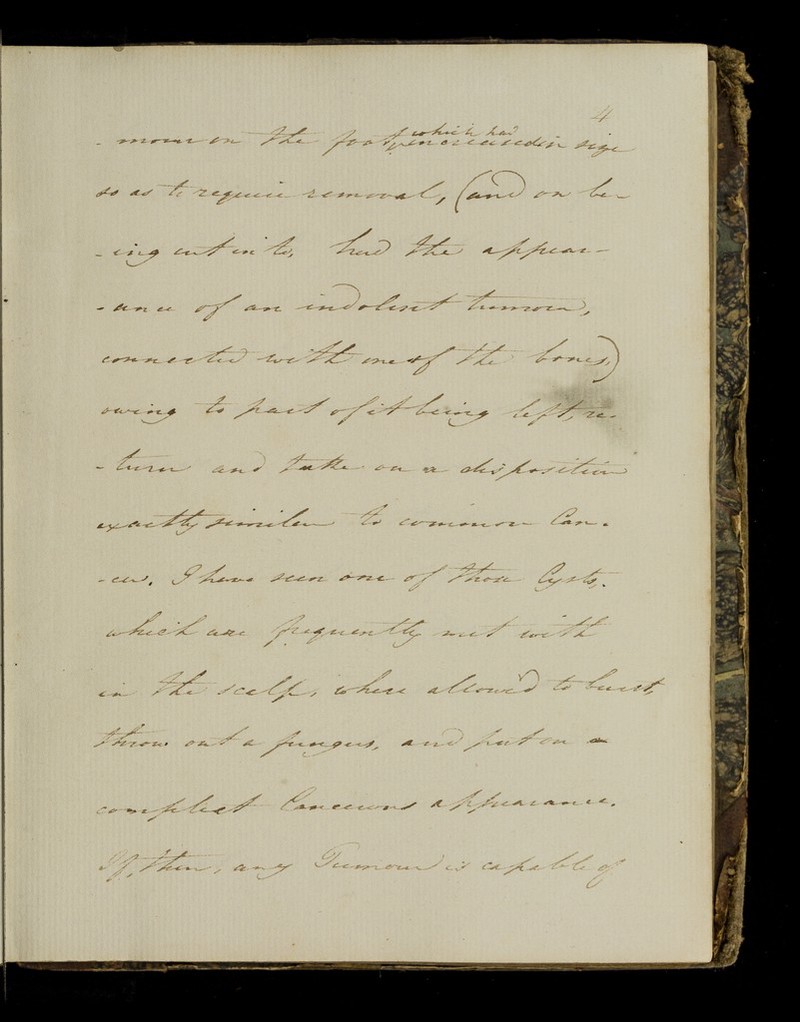 4
which had
- mour on the foot, increased in size
so as to require removal, (and on be-
- ing cut into, had the appear-
- ance of an indolent tumour,
connected with one of the bones,)
owing to part of it being left, re-
- turn and take on a disposition
exactly similar to common Can-
- cer. I have seen one of those Cysts,
which are frequently met with
in the scalp, where allow'd to burst,
throw out a fungus, and put on a
compleat Cancerous appearance.
If, then, any Tumour is capable of